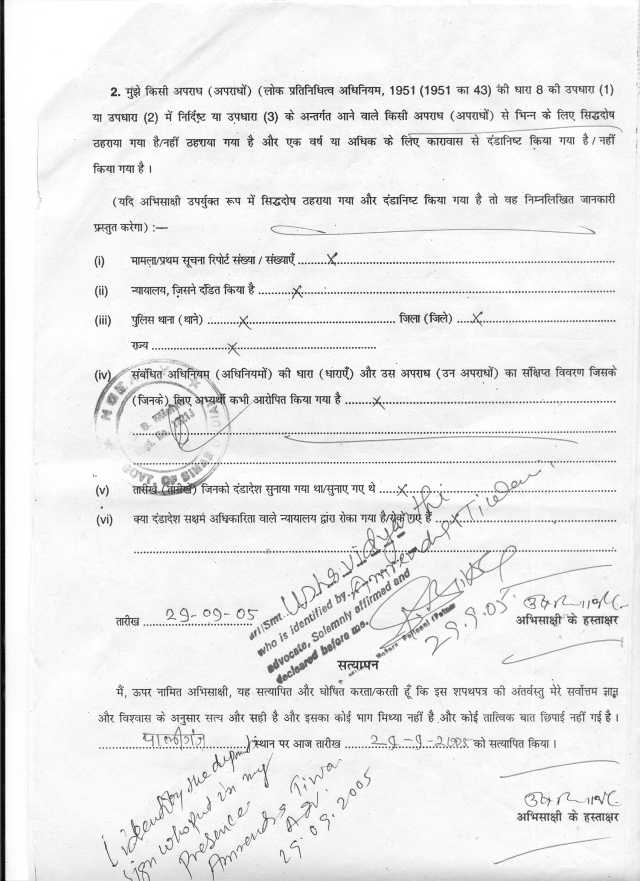 2. मुझे किसी अपराध (अपराधों) (लोक प्रतिनिधित्व अधिनियम, 1951 (1951 का 43) की धारा 8 की उपधारा (1)
या उपधारा (2) में निर्दिष्ट या उपधारा (3) के अन्तर्गत आने वाले किसी अपराध (अपराधों) से भिन्न के लिए सिद्धदोष
ठहराया गया है/नहीं ठहराया गया है और एक वर्ष या अधिक के लिए कारावास से दंडानिष्ट किया गया है / नहीं
किया गया है ।
(यदि अभिसाक्षी उपर्युक्त रूप में सिद्धदोष ठहराया गया और दंडानिष्ट किया गया है तो वह निम्नलिखित जानकारी
प्रस्तुत करेगा) :—
(i) मामला/प्रथम सूचना रिपोर्ट संख्या / संख्याएँ ......X......
(ii) न्यायालय, जिसने दंडित किया है ......X......
(iii) पुलिस थाना (थाने) ......X...... जिला (जिले) ......X......
राज्य ......X......
(iv) संबंधित अधिनियम (अधिनियमों) की धारा (धाराएँ) और उस अपराध (उन अपराधों) का संक्षिप्त विवरण जिसके
(जिनके) लिए अभ्यर्थी कभी आरोपित किया गया है ......X......
(v) तारीखें (तारीखें) जिनको दंडादेश सुनाया गया था/सुनाए गए थे ......X......
(vi) क्या दंडादेश सक्षम अधिकारिता वाले न्यायालय द्वारा रोका गया है/रोके गए हैं
who is identified by
advocate, Solemnly affirmed and
declared before me.
29.9.05
तारीख 29-09-05
अभिसाक्षी के हस्ताक्षर
सत्यापन
मैं, ऊपर नामित अभिसाक्षी, यह सत्यापित और घोषित करता/करती हूँ कि इस शपथपत्र की अंतर्वस्तु मेरे सर्वोत्तम ज्ञान
और विश्वास के अनुसार सत्य और सही है और इसका कोई भाग मिथ्या नहीं है और कोई तात्विक बात छिपाई नहीं गई है ।
पालीगंज स्थान पर आज तारीख 29-9-2005 को सत्यापित किया ।
sign who put in my
Presence
29.09.2005
अभिसाक्षी के हस्ताक्षर